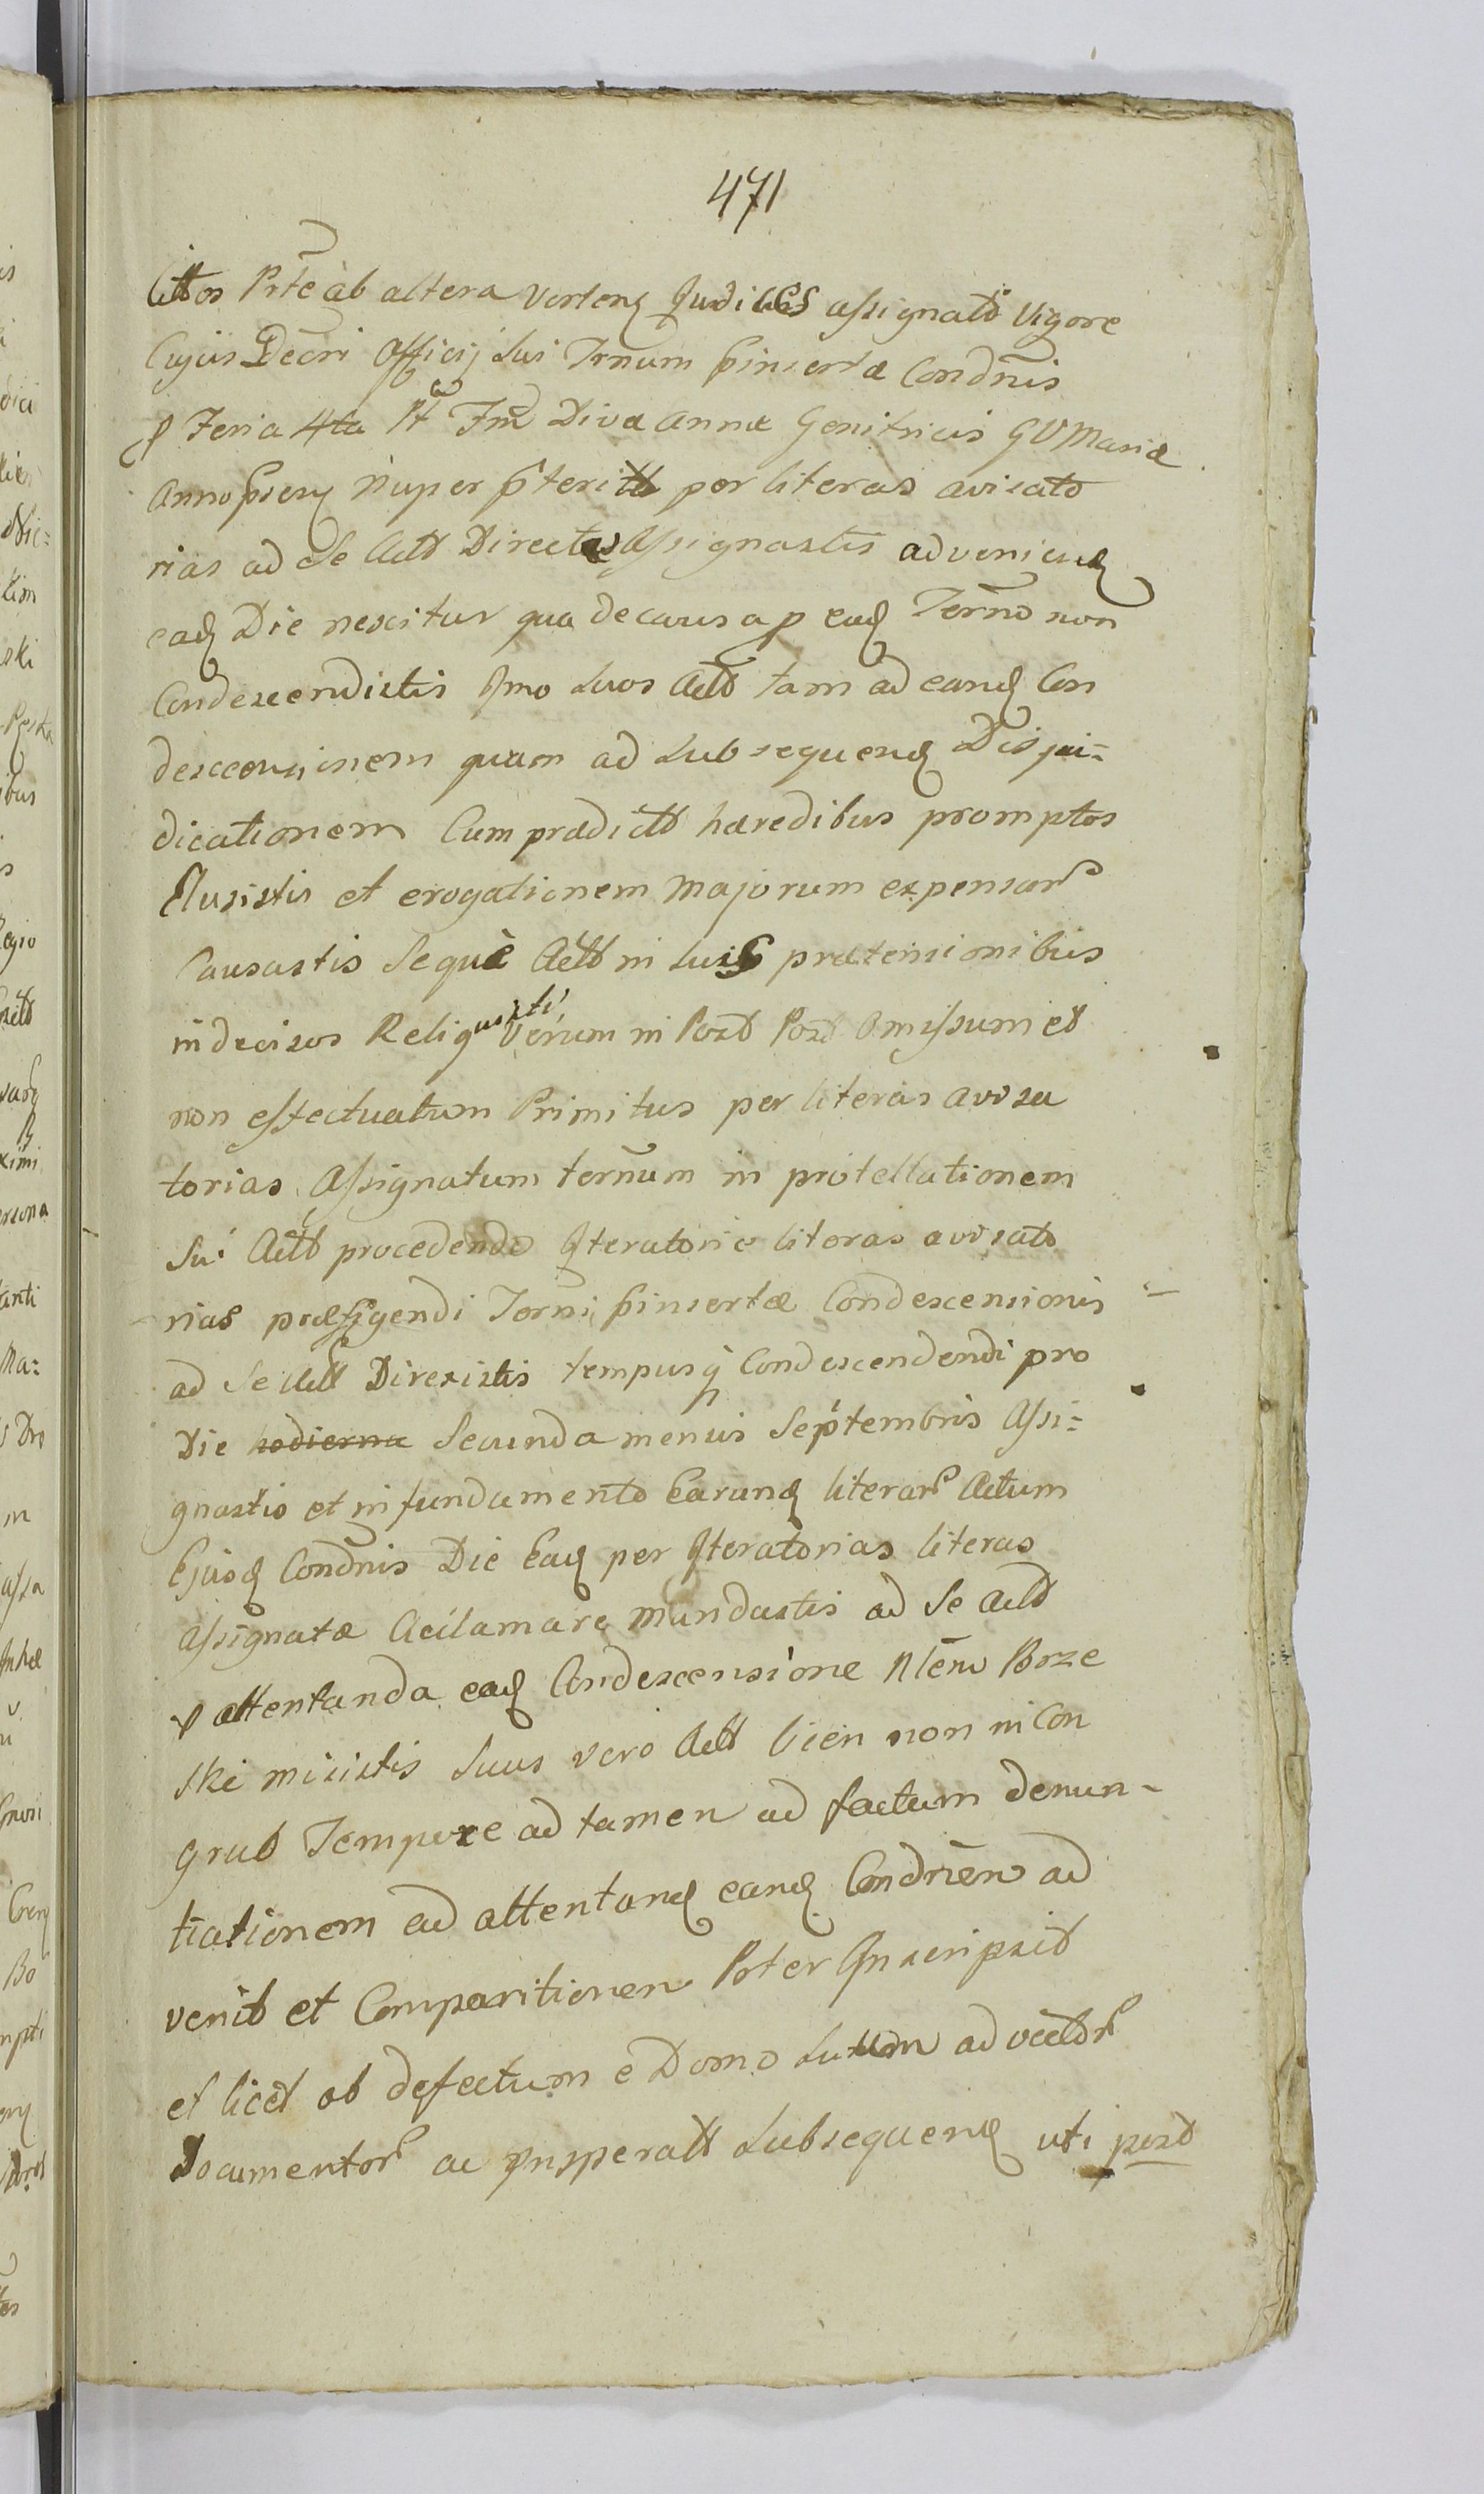 471
Cittos Prte ab altera verten Judices assignato vigore
Cujus Decri Officij sui Trnum pinserta Condnis
p Feria 4ta Pt Fm Diva Anna Genitricis GVMaria
Anno pseny nuper pterito per literas avisato
rias ad Se Actt Directas Assignastis advenien
eaq Die nescitur qua de causa p eaq Termo non
Condescendistis Imo suos Actt tam ad eanq Con
descensionem quam ad subsequenq Disjui=
dicationem Cum prædictt hæredibus promptos
Elusistis et erogationem Majorum expensar
Causastis Seque Actt in suis prætensionibus
indecisos Reliquisti, Verum in Post Post Omissum et
non effectuatum Primitus per literas avisa
torias Assignatum ternum in protellationem
sui Actt procedendo Iteratorie literas avisato
rias præfigendi Termi pinsertæ Condescensionis
ad Se Actt Direxistis tempusq Condescendendi pro
Die hodierna Secunda mensis Septembris Assi=
gnastis et in fundamento Earunq literar Actum
Ejusq Condnis Die Eaq per Iteratorias literas
Assignatæ Acclamare mandastis ad Se Actt
p attentanda eaq Condescensione Ntem Boze
ski misistis suus vero Actt licen non in Con
gruo Tempore ad tamen ad factum denun-
tiationem ad attentanq eanq Condnien ad
venit et Comparitionem Pter Inscripsit
et licet ob defectum e Domo suum advector
Documentor ac insperatt subsequenq uti post